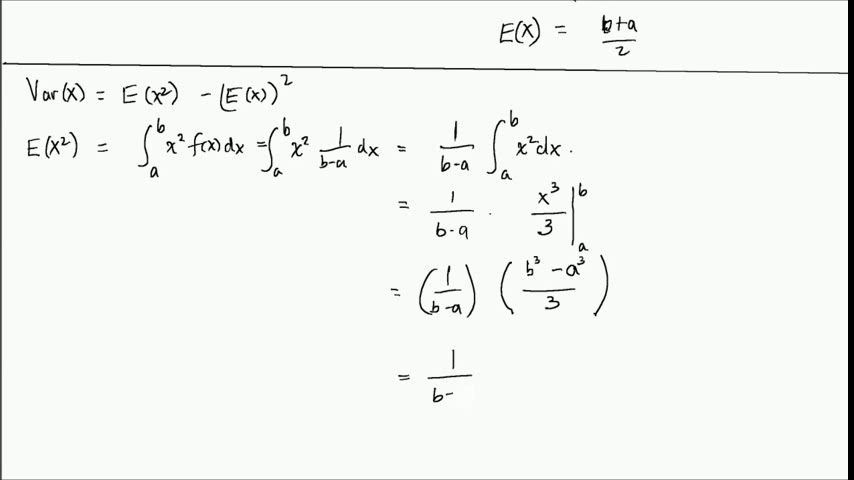 E(X) = b+a/2
Var(X) = E(X²) - (E(X))²
E(X²) = ∫ₐᵇ x² f(x) dx = ∫ₐᵇ x² 1/b-a dx = 1/b-a ∫ₐᵇ x² dx.
= 1/b-a · x³/3 |ₐᵇ
= (1/b-a) (b³ - a³/3)
= 1/b-